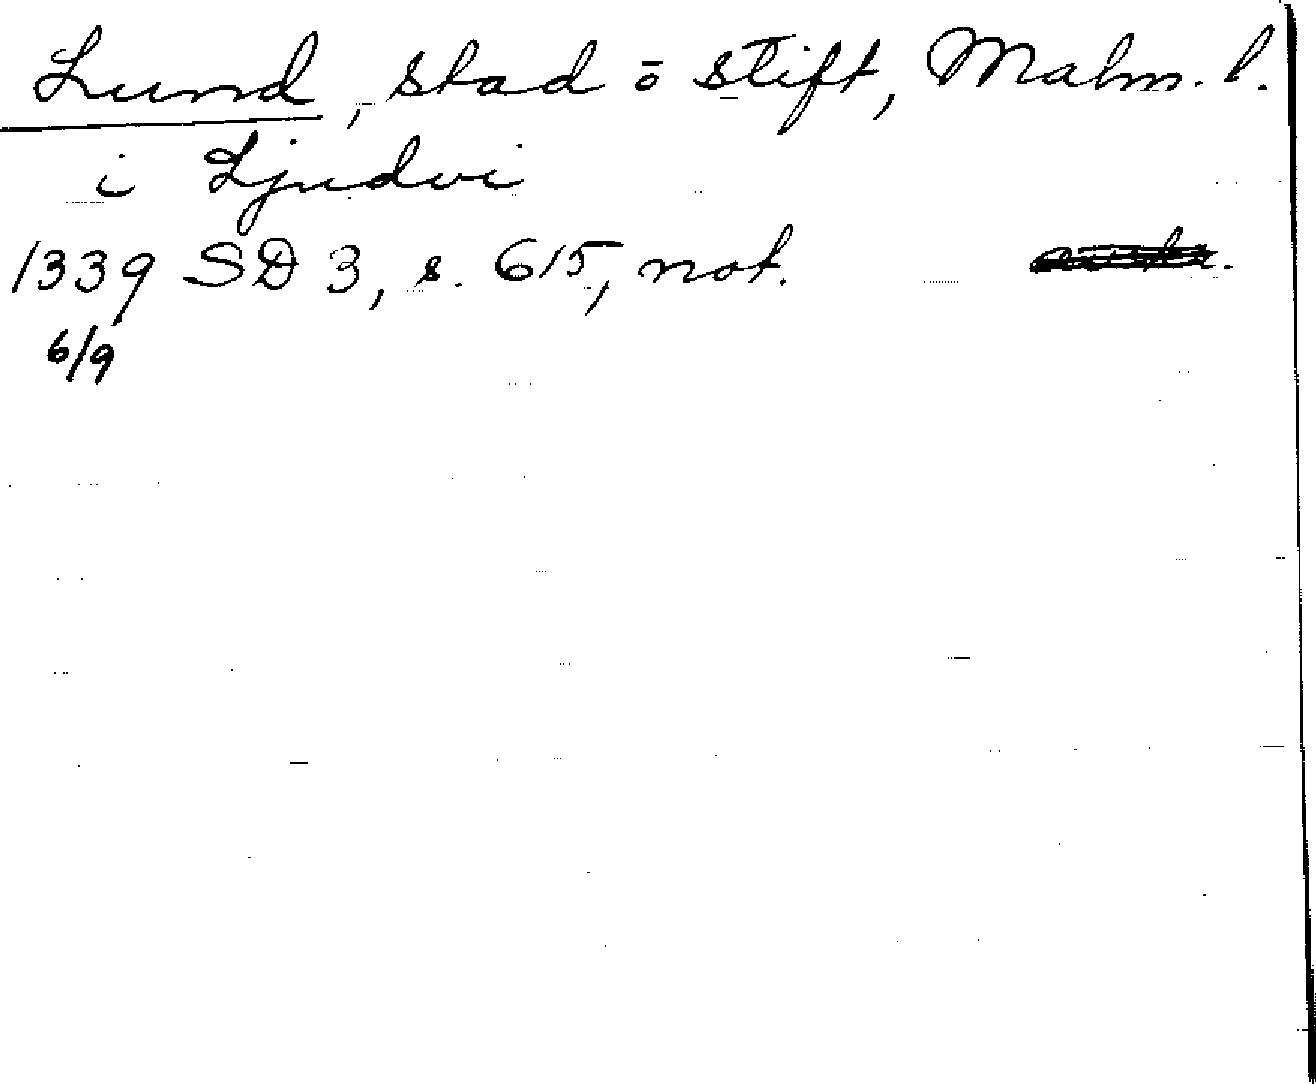 Lund, stad o stift, Malm. l.
i Ljudvi
1339 SD 3, s. 615, not.
6/9